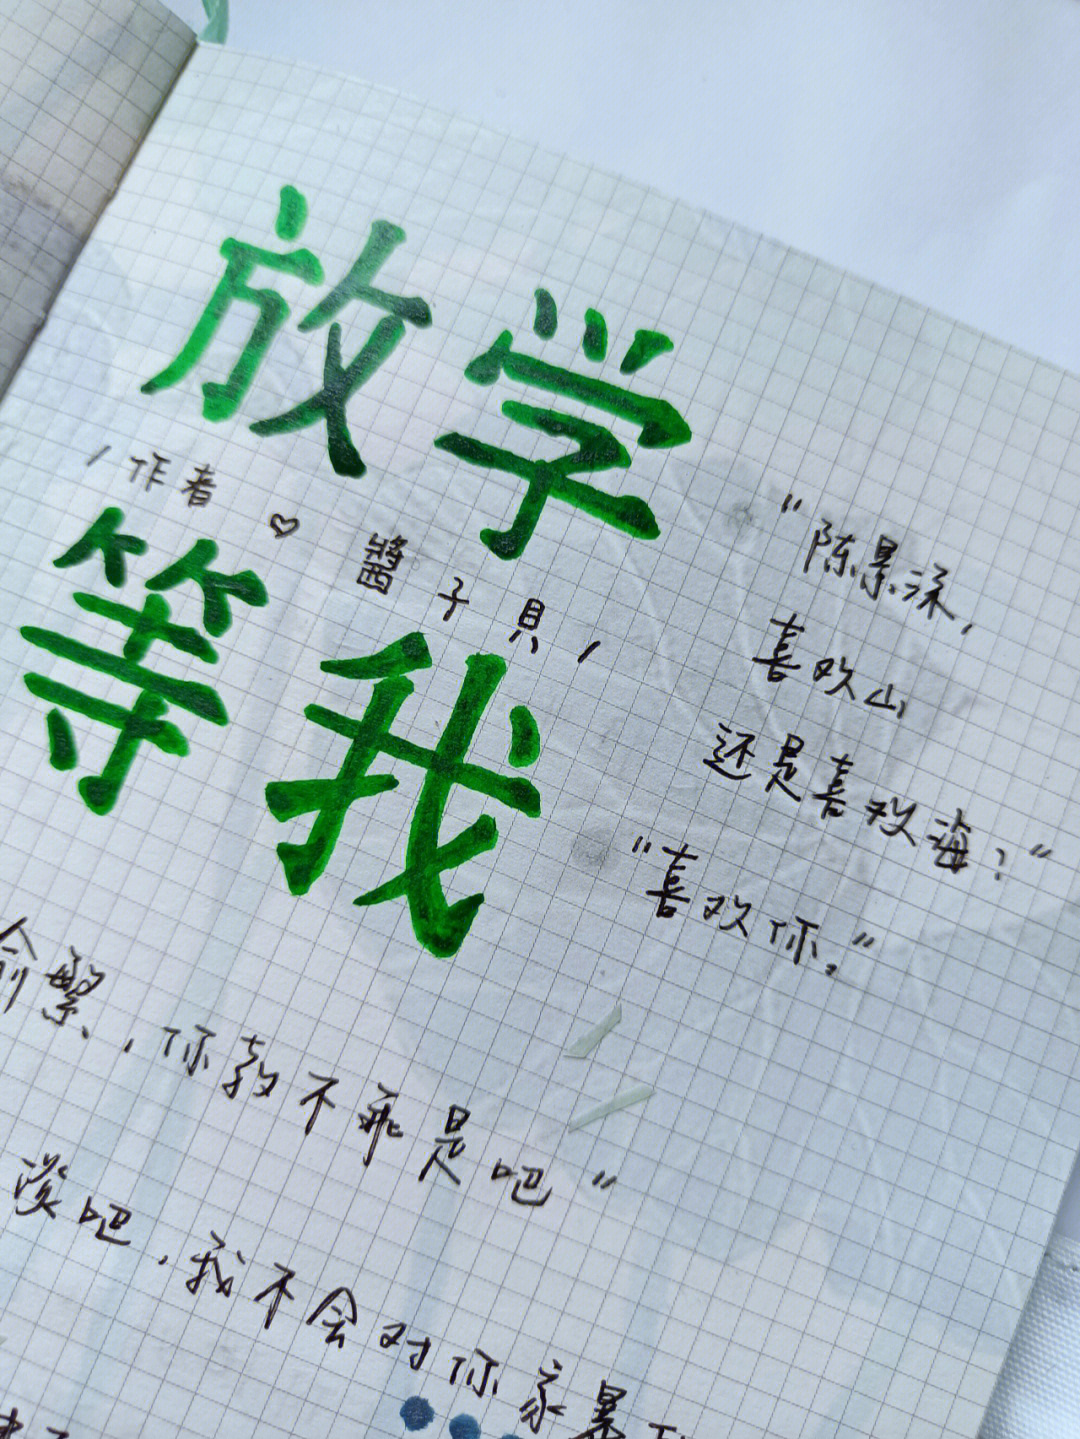 放学
/作者♡醬子貝/
等我
"陈景深,
喜欢山
还是喜欢海?"
"喜欢你。"
俞繁,你教不乖是吧"
吧,我不会对你家暴